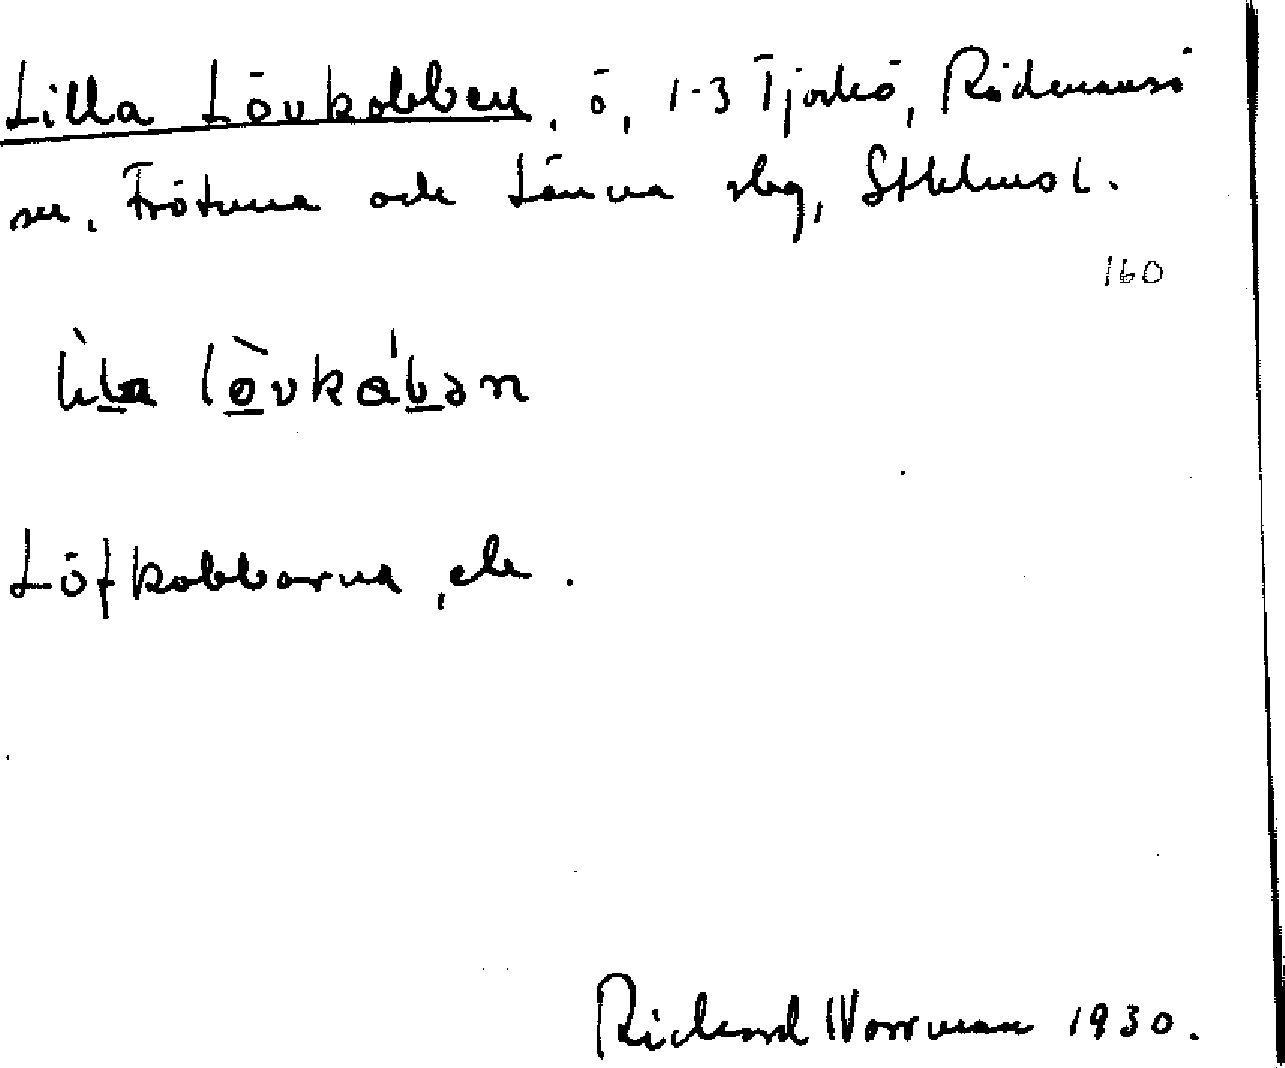 Lilla Lövkobben, ö, 1-3 Tjockö, Rådmansö
sn, Frötuna och Länna slg, Sthlms l.
160
lìla lö̀vkábən
Löfkobbarna, ek.
Rickard Norrman 1930.